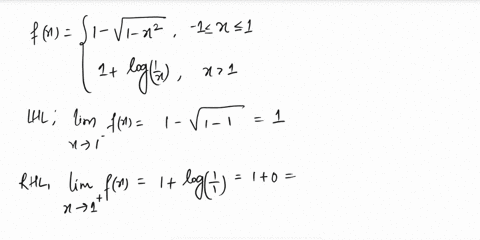 f(x) = { 1 - √(1 - x²) , -1 ≤ x ≤ 1
1 + log(1/x) , x > 1
LHL; lim x→1⁻ f(x) = 1 - √(1 - 1) = 1
RHL, lim x→1⁺ f(x) = 1 + log(1/1) = 1 + 0 =